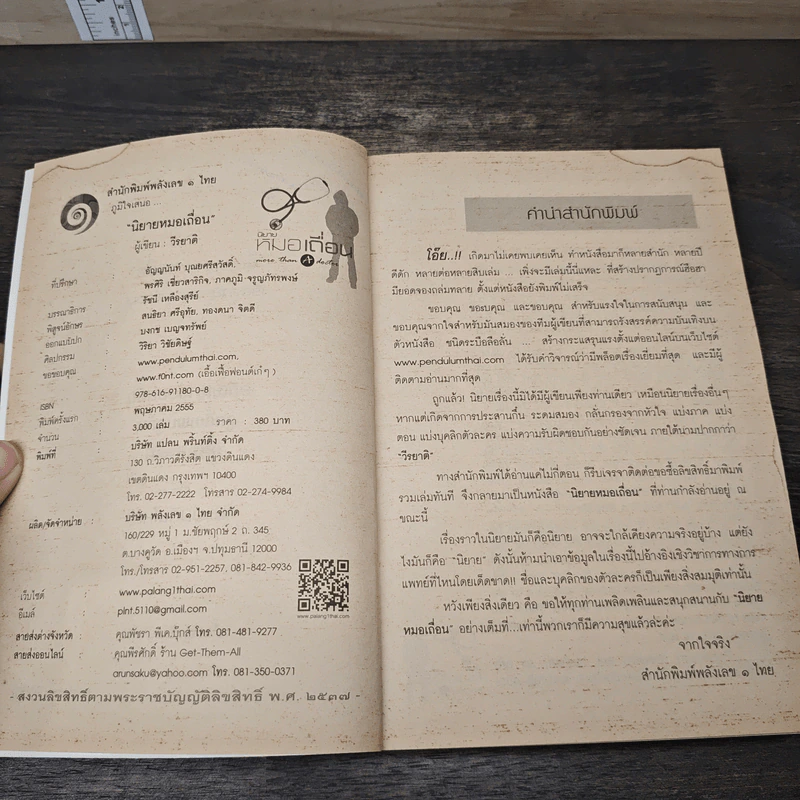 สำนักพิมพ์พลังเลข ๑ ไทย
ภูมิใจเสนอ ...
"นิยายหมอเถื่อน"
ผู้เขียน : วีรยาติ
นิยาย
หมอเถื่อน
more than A doctor
ที่ปรึกษา : อัญญนันท์ บุณยศรีสวัสดิ์,
พรศิริ เชี่ยวสาริกิจ, ภาคภูมิ จรูญภัทรพงษ์
บรรณาธิการ : รัชนี เหลืองสุรีย์
พิสูจน์อักษร : สนธิยา ศรีอุทัย, ทองดนา จิตดี
ออกแบบปก : บงกช เบญจทรัพย์
ศิลปกรรม : วิริยา วิชัยดิษฐ์
ขอขอบคุณ : www.pendulumthai.com,
www.f0nt.com (เอื้อเฟื้อฟอนต์เก๋ๆ)
ISBN : 978-616-91180-0-8
พิมพ์ครั้งแรก : พฤษภาคม 2555
จำนวน : 3,000 เล่ม ราคา : 380 บาท
พิมพ์ที่ : บริษัท แปลน พริ้นท์ติ้ง จำกัด
130 ถ.วิภาวดีรังสิต แขวงดินแดง
เขตดินแดง กรุงเทพฯ 10400
โทร. 02-277-2222 โทรสาร 02-274-9984
ผลิต/จัดจำหน่าย : บริษัท พลังเลข ๑ ไทย จำกัด
160/229 หมู่ 1 ม.ชัยพฤกษ์ 2 ถ. 345
ต.บางคูวัด อ.เมืองฯ จ.ปทุมธานี 12000
โทร./โทรสาร 02-951-2257, 081-842-9936
เว็บไซต์ : www.palang1thai.com
อีเมล์ : pint.5110@gmail.com
www.palang1thai.com
สายส่งต่างจังหวัด : คุณพัชรา พีเค.บุ๊กส์ โทร. 081-481-9277
สายส่งออนไลน์ : คุณพีรศักดิ์ ร้าน Get-Them-All
arunsaku@yahoo.com โทร. 081-350-0371
- สงวนลิขสิทธิ์ตามพระราชบัญญัติลิขสิทธิ์ พ.ศ. ๒๕๓๗ -
คำนำสำนักพิมพ์
โอ๊ย..!! เกิดมาไม่เคยพบเคยเห็น ทำหนังสือมาก็หลายสำนัก หลายปี
ดีดัก หลายต่อหลายสิบเล่ม ... เพิ่งจะมีเล่มนี้นี่แหละ ที่สร้างปรากฏการณ์ฮือฮา
มียอดจองถล่มทลาย ตั้งแต่หนังสือยังพิมพ์ไม่เสร็จ
ขอบคุณ ขอบคุณ และขอบคุณ สำหรับแรงใจในการสนับสนุน และ
ขอบคุณจากใจสำหรับมันสมองของทีมผู้เขียนที่สามารถรังสรรค์ความบันเทิงบน
ตัวหนังสือ ชนิดระเบิดระเบ้อมือลั่น ...! สร้างกระแสรุนแรงตั้งแต่ออนไลน์บนเว็บไซต์
www.pendulumthai.com ได้รับคำวิจารณ์ว่ามีพล็อตเรื่องเยี่ยมที่สุด และมีผู้
ติดตามอ่านมากที่สุด
ถูกแล้ว! นิยายเรื่องนี้มิได้มีผู้เขียนเพียงท่านเดียว เหมือนนิยายเรื่องอื่นๆ
หากแต่เกิดจากการประสานกื๋น ระดมสมอง กลั่นกรองจากหัวใจ แบ่งภาค แบ่ง
ตอน แบ่งบุคลิกตัวละคร แบ่งความรับผิดชอบกันอย่างชัดเจน ภายใต้นามปากกาว่า
"วีรยาติ"
ทางสำนักพิมพ์ได้อ่านแค่ไม่กี่ตอน ก็รีบเจรจาติดต่อขอซื้อลิขสิทธิ์มาพิมพ์
รวมเล่มทันที จึงกลายมาเป็นหนังสือ "นิยายหมอเถื่อน" ที่ท่านกำลังอ่านอยู่ ณ
ขณะนี้
เรื่องราวในนิยายมันก็คือนิยาย อาจจะใกล้เคียงความจริงอยู่บ้าง แต่ยัง
ไงมันก็คือ "นิยาย" ดังนั้นห้ามนำเอาข้อมูลในเรื่องนี้ไปอ้างอิงเชิงวิชาการทางการ
แพทย์ที่ไหนโดยเด็ดขาด!! ชื่อและบุคลิกของตัวละครก็เป็นเพียงสิ่งสมมุติเท่านั้น
หวังเพียงสิ่งเดียว คือ ขอให้ทุกท่านเพลิดเพลินและสนุกสนานกับ "นิยาย
หมอเถื่อน" อย่างเต็มที่...เท่านี้พวกเราก็มีความสุขแล้วล่ะค่ะ
จากใจจริง
สำนักพิมพ์พลังเลข ๑ ไทย